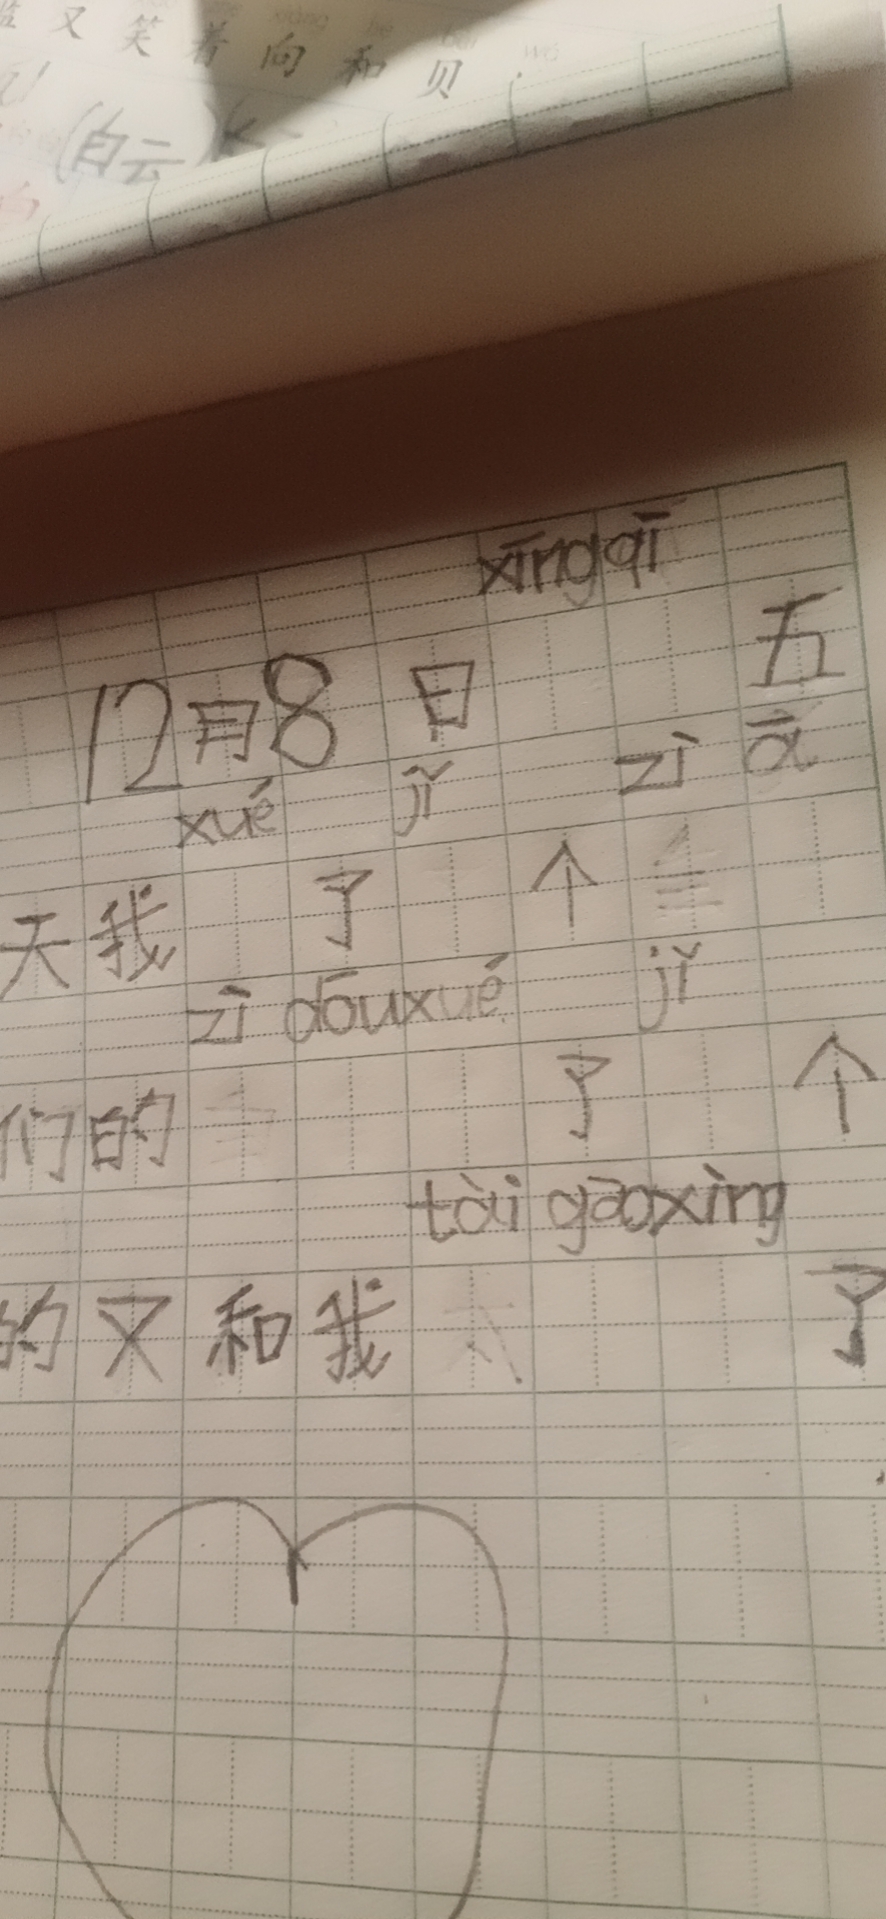 又笑着向和贝
(白云)
xīngqī
12月8日 五
xué jǐ zì ā
天我 了 个
zì dōuxué jǐ
们的 了 个
tài gāoxìng
的又和我太 了